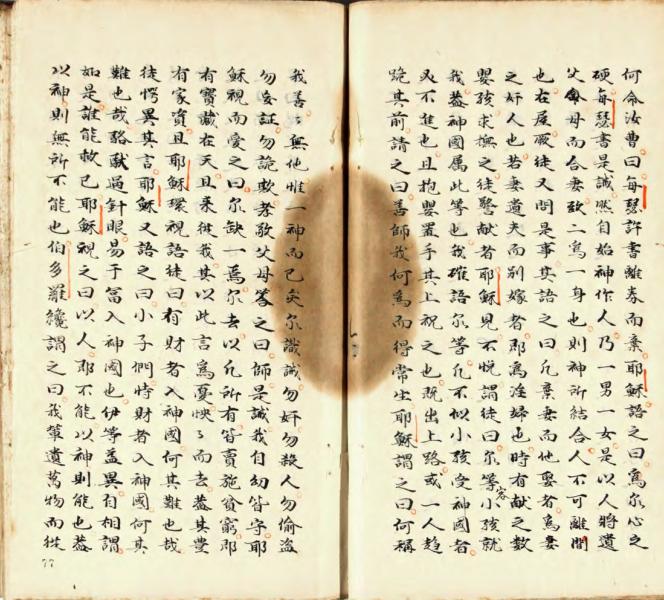 何命汝曹曰每瑟許書離券而棄耶穌語之曰為尔心之
硬每瑟書是誡然自始神作人乃一男一女是以人將遺
父母而合妻致二為一身也則神所結合人不可離間
也在屋厥徒又問是事其語之曰凡棄妻而他娶者為妻
之奸人也若妻遺夫而別嫁者即為淫婦也時有献之數
嬰孩求撫之徒警献者耶穌見不悅謂徒曰尔等容小孩就
我蓋神國属此等也我確語尔等凡不似小孩受神國者
必不進也且抱嬰置手其上祝之也既出上路或一人趋
跪其前請之曰善師我何為而得常生耶穌謂之曰何稱
我善善無他惟一神而已矣尔識誡勿奸勿殺人勿偷盜
勿妄証勿詭欺孝敬父母答之曰師是誡我自幼皆守耶
穌視而愛之曰尔缺一焉尔去以凡所有皆賣施貧窮即
有寶藏在天且来從我其以此言為憂怏怏而去蓋其豊
有家資且耶穌環視語徒曰有財者入神國何其難也哉
徒愕異其言耶穌又語之曰小子們恃財者入神國何其
難也哉駱駝過針眼易于富入神國也伊等益異自相謂
如是誰能救已耶穌視之曰以人即不能以神則能也蓋
以神則無所不能也伯多羅纔謂之曰我輩遺萬物而從
77